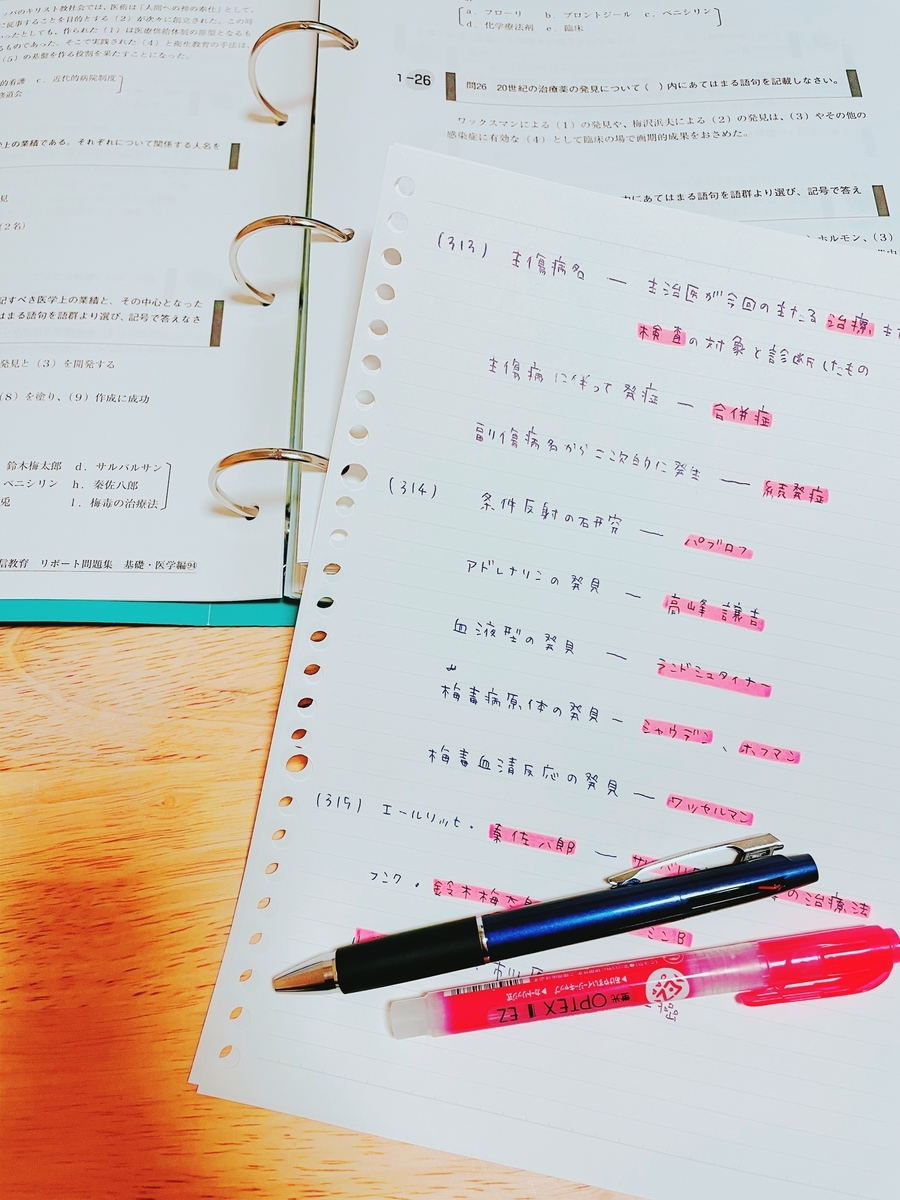 ッパのキリスト教社会では、医術は「人間への神の奉仕」として、
に従事することを目的とする（2）が次々に創立された。この時
ったとしても、作られた（1）は医療供給体制の原型となるも
るものであった。そこで実践された（4）と
（5）の基盤を作る役割を果たすことになった。
的看護　c．近代的病院制度
修道会
上の業績である。それぞれについて関係する人名を
見
（2名）
記すべき医学上の業績と、その中心となった
はまる語句を語群より選び、記号で答えなさ
発見と（3）を開発する
（8）を塗り、（9）作成に成功
鈴木梅太郎　d．サルバルサン
ペニシリン　h．秦佐八郎
兎　l．梅毒の治療法
信教育　リポート問題集　基礎・医学編94
a．フローリ　b．プロントジール　c．ペニシリン
d．化学療法剤　e．臨床
1-26
問26　20世紀の治療薬の発見について（　）内にあてはまる語句を記載しなさい。
ワックスマンによる（1）の発見や、梅沢浜夫による（2）の発見は、（3）やその他の
感染症に有効な（4）として臨床の場で画期的成果をおさめた。
内にあてはまる語句を語群より選び、記号で答え
ホルモン、（3）
(313) 主傷病名 — 主治医が今回の主たる治療、ま
検査の対象と診断したもの
主傷病に伴って発症 — 合併症
副傷病名から二次的に発生 — 続発症
(314) 条件反射の研究 — パブロフ
アドレナリンの発見 — 高峰 譲吉
血液型の発見 — ランドシュタイナー
梅毒病原体の発見 — シャウデン、ホフマン
梅毒血清反応の発見 — ワッセルマン
(315) エールリッヒ・秦佐八郎 —
の治療法
フンク・鈴木梅
ミンB
OPTEX 1 EZ
蛍光
▶おけやすいイージーキャップ
▶カートリッジ式